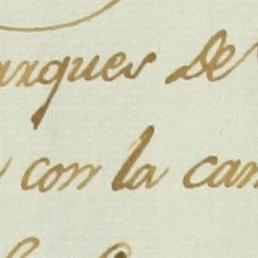 arques de
con la cam